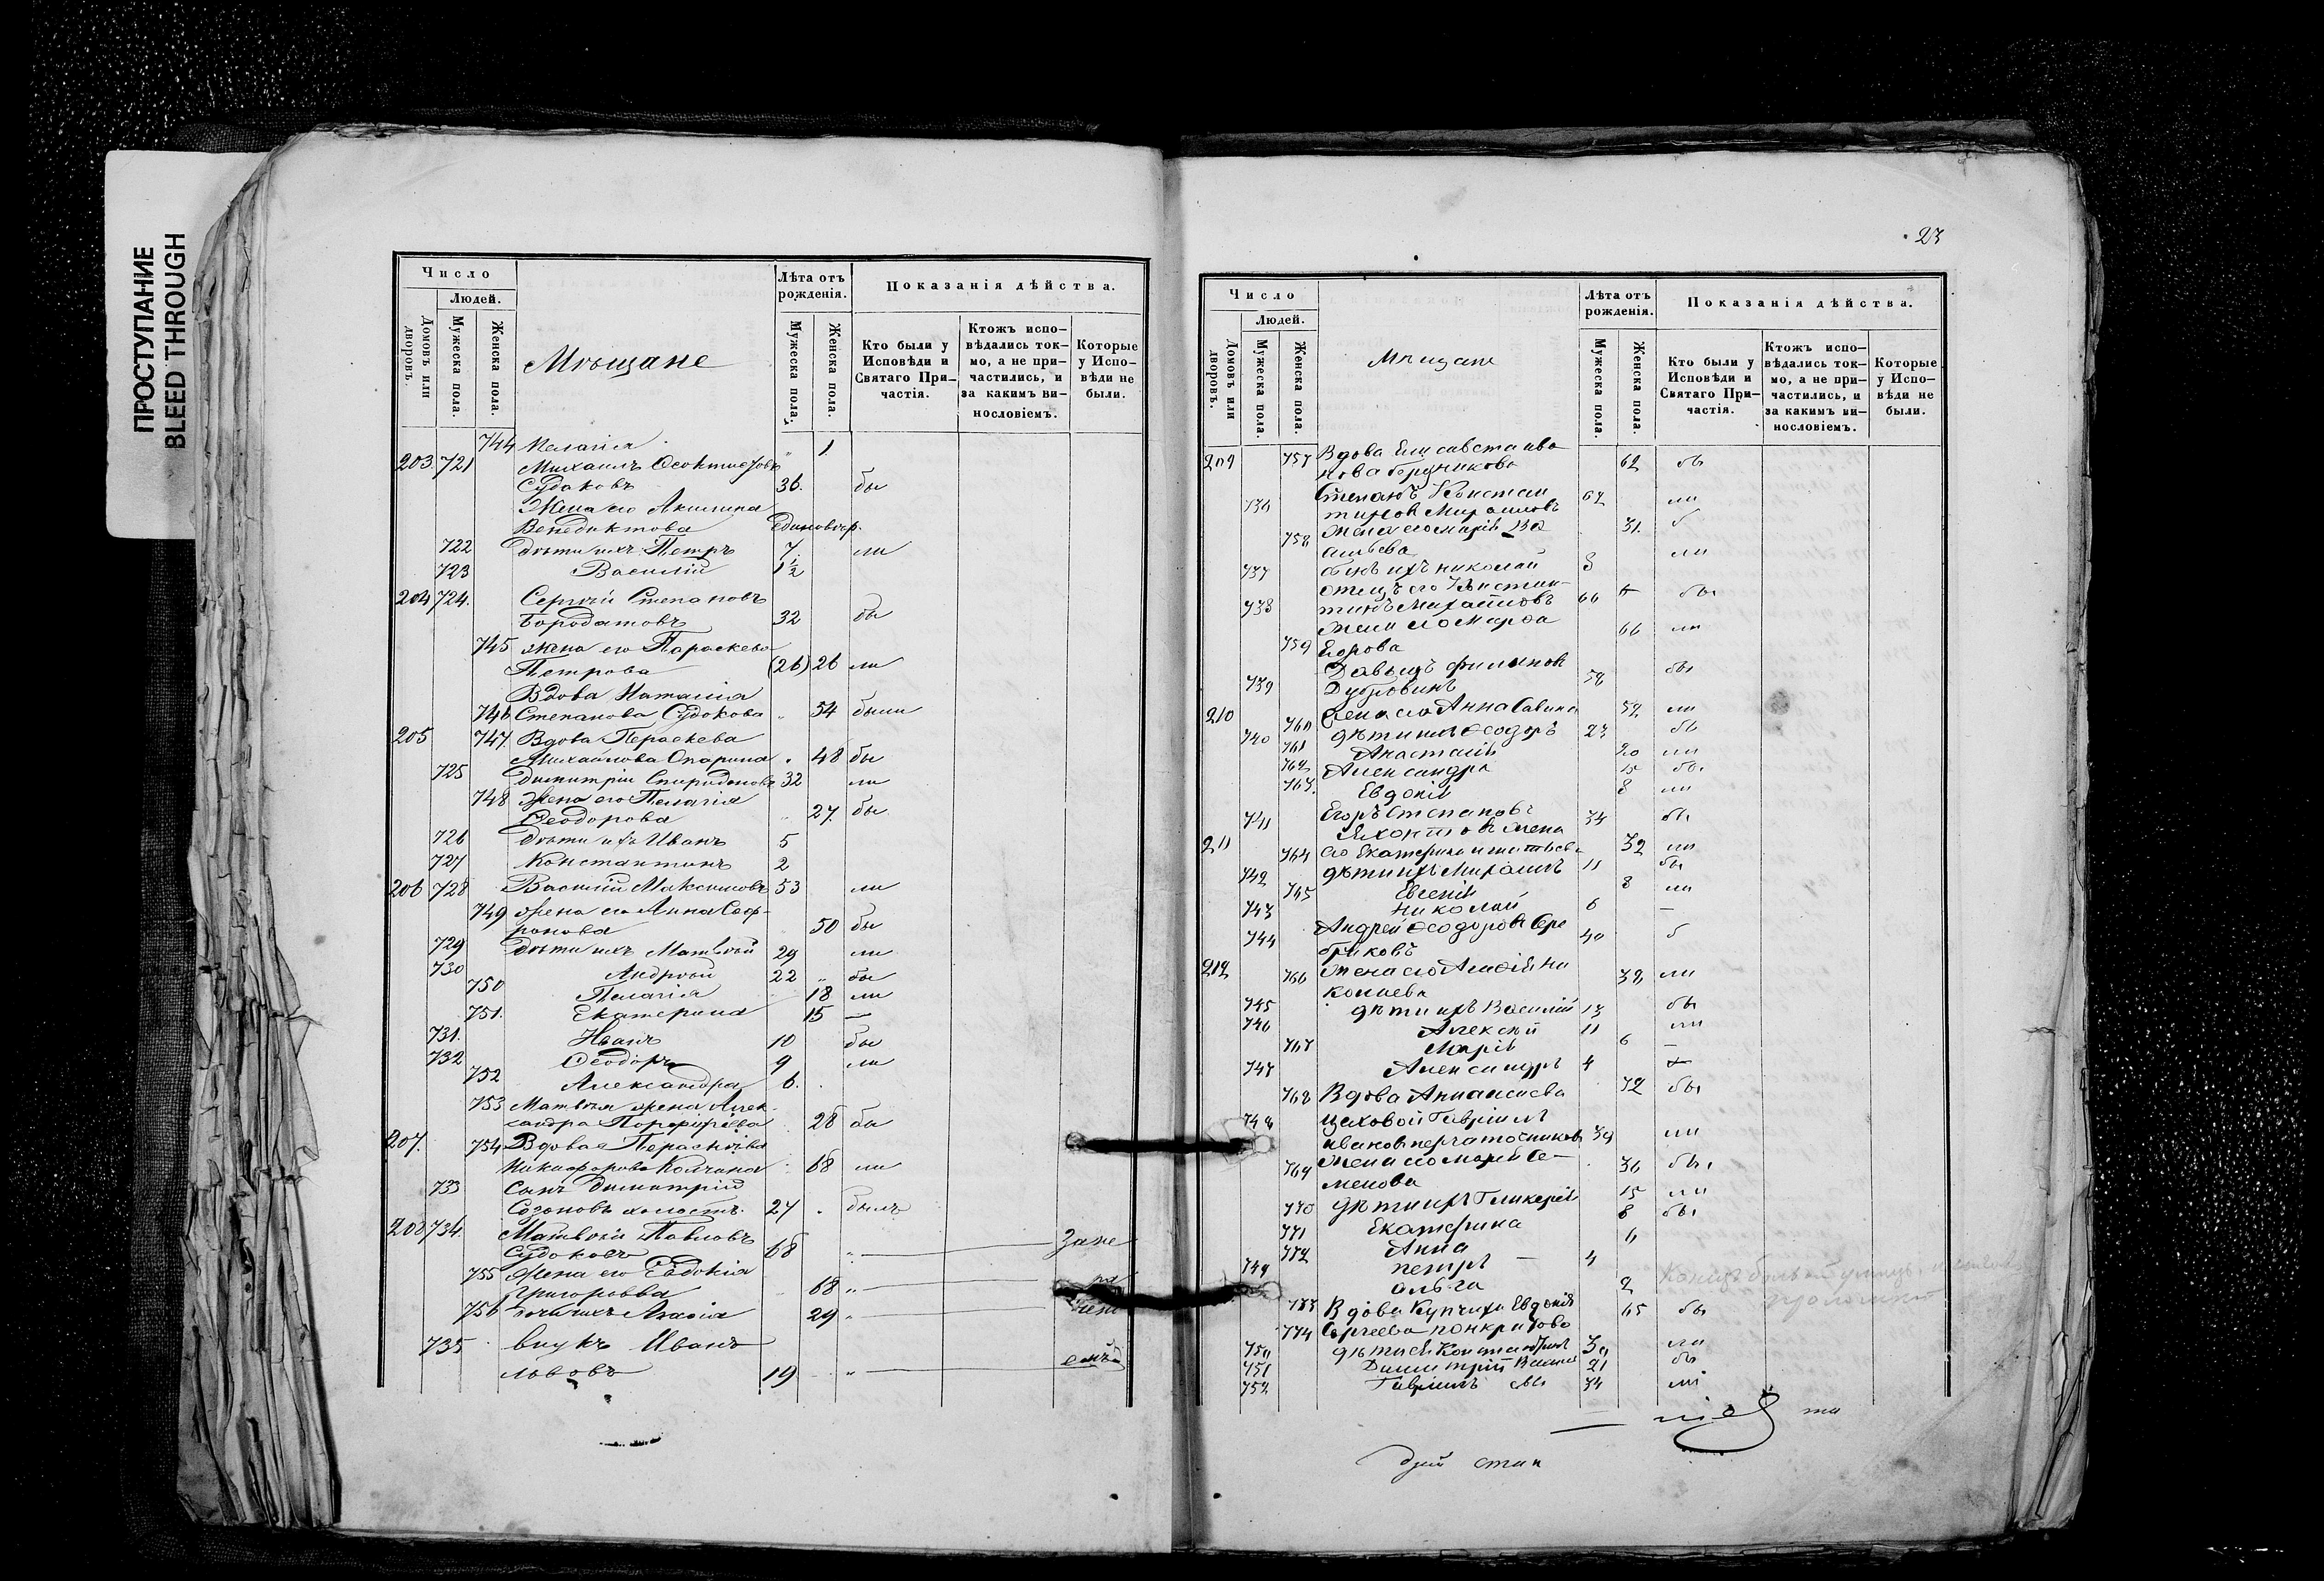 ПРОСТУПАНИЕ
BLEED THROUGH
Число
Людей.
Домовъ или дворовъ.
Мужеска пола.
Женска пола.
Мѣщане
Лѣта отъ рожденія.
Мужеска пола.
Женска пола.
Показанія дѣйства.
Кто были у Исповѣди и Святаго Причастія.
Ктожъ исповѣдались токмо, а не причастились, и за какимъ винословіемъ.
Которые у Исповѣди не были.
744 Пелагія 1
203. 721 Михаилъ
Судаковъ 36. бы
Жена его Акилина
Венедиктова Единовѣр.
722 Дѣти ихъ Петръ 7. ли
723 Василій 1 1/2
204 724. Сергѣй Степановъ
Бородатовъ 32 бы
745 жена его Параскева
Петрова (26) 26 ли
Вдова Наталія
746 Степанова Судокова " 54 были
205 747. Вдова Параскева
Михайлова Опарина " 48 бы
725 Димитрій Спиридоновъ 32 ли
748 Жена его Пелагія
Ѳеодорова " 27 бы
726 Дѣти ихъ Иванъ 5
727 Константинъ 2
206 728 Василій Максимовъ 53 ли
749 Жена его Анна Соф-
ронова 50 бы
729 Дѣти ихъ Матвѣй 29 ли
730 Андрей 22 " бы
750 Пелагія 18 ли
751. Екатерина 15 —
731. Иванъ 10 бы
732 Ѳеодоръ 9 ли
752 Александра 6.
753 Матвѣя жена Алек-
сандра Порфирьева 28 бы
207. 754 Вдова Параскева
Никифорова 68 ли
733 Сынъ Димитрій
Созоновъ холостъ. 27 " былъ
208 734. Матвѣй Павловъ
Судоковъ 68 " — Зане
755 Жена его Евдокія
Григорьева 68 " —
756 дочь ихъ 29 " —
735 внукъ Иванъ
Львовъ 19 " —
23
Число
Людей.
Домовъ или дворовъ.
Мужеска пола.
Женска пола.
Мѣщане
Лѣта отъ рожденія.
Мужеска пола.
Женска пола.
Показанія дѣйства.
Кто были у Исповѣди и Святаго Причастія.
Ктожъ исповѣдались токмо, а не причастились, и за какимъ винословіемъ.
Которые у Исповѣди не были.
209 757 Вдова Елисавета Ива
нова 62 бы
736 Степанъ Констан ли
тинов
758 Жена его Марія Ва 31. б
сильева
737 сынъ ихъ Николай 3 ли
отецъ его Констан-
738 тинъ Михайловъ 66 бы
жена его Марѳа 66 ли
759 Егорова
Давыдъ Филипов бы
739 Дубровинъ 58
210 760 Жена его Анна Савина 52 ли
740 дѣти ихъ Ѳеодоръ 23 бы
761 Анастасія 20 ли
762 Александра 15 бы
763. Евдокія 8 ли
741 Егоръ Степановъ 34 бы
Яхонтовъ жена
211 764 его Екатерина 32 ли
742 дѣти ихъ Михаилъ 11 бы
765 Евгенія 8 ли
743 Николай 6 —
744 Андрей Ѳеодоровъ Сере 40 б
бряковъ
212 766 Жена его 38 ли
745 дѣти ихъ Василій 13 бы
746 Алексѣй 11 ли
767 Марія 6 —
747 Александръ 4
768 Вдова Анна 72 бы
748 Цеховой Гавріилъ
Иванов 39 ли
769 Жена его Марія Се- 36 бы
менова
770 дѣти ихъ Гликерія 15 ли
771 Екатерина 8 бы
772 Анна 6
749 Петръ — 4
Ольга 2
773 Вдова Купчиха Евдокія 65 бы
774 Сергеева
750 дѣти ея Константинъ ли
751 Димитрій 21 бы
752 Гавріилъ 34 ли